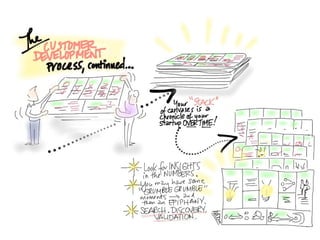 The
CUSTOMER
DEVELOPMENT
PROCESS, continued...
Your "STACK"
of canvases is a
chronicle of your
startup OVER TIME!
Look for INSIGHTS
in the NUMBERS.
You may have some
"GRUMBLE GRUMBLE"
moments and
then an EPIPHANY.
SEARCH. DISCOVERY.
VALIDATION.